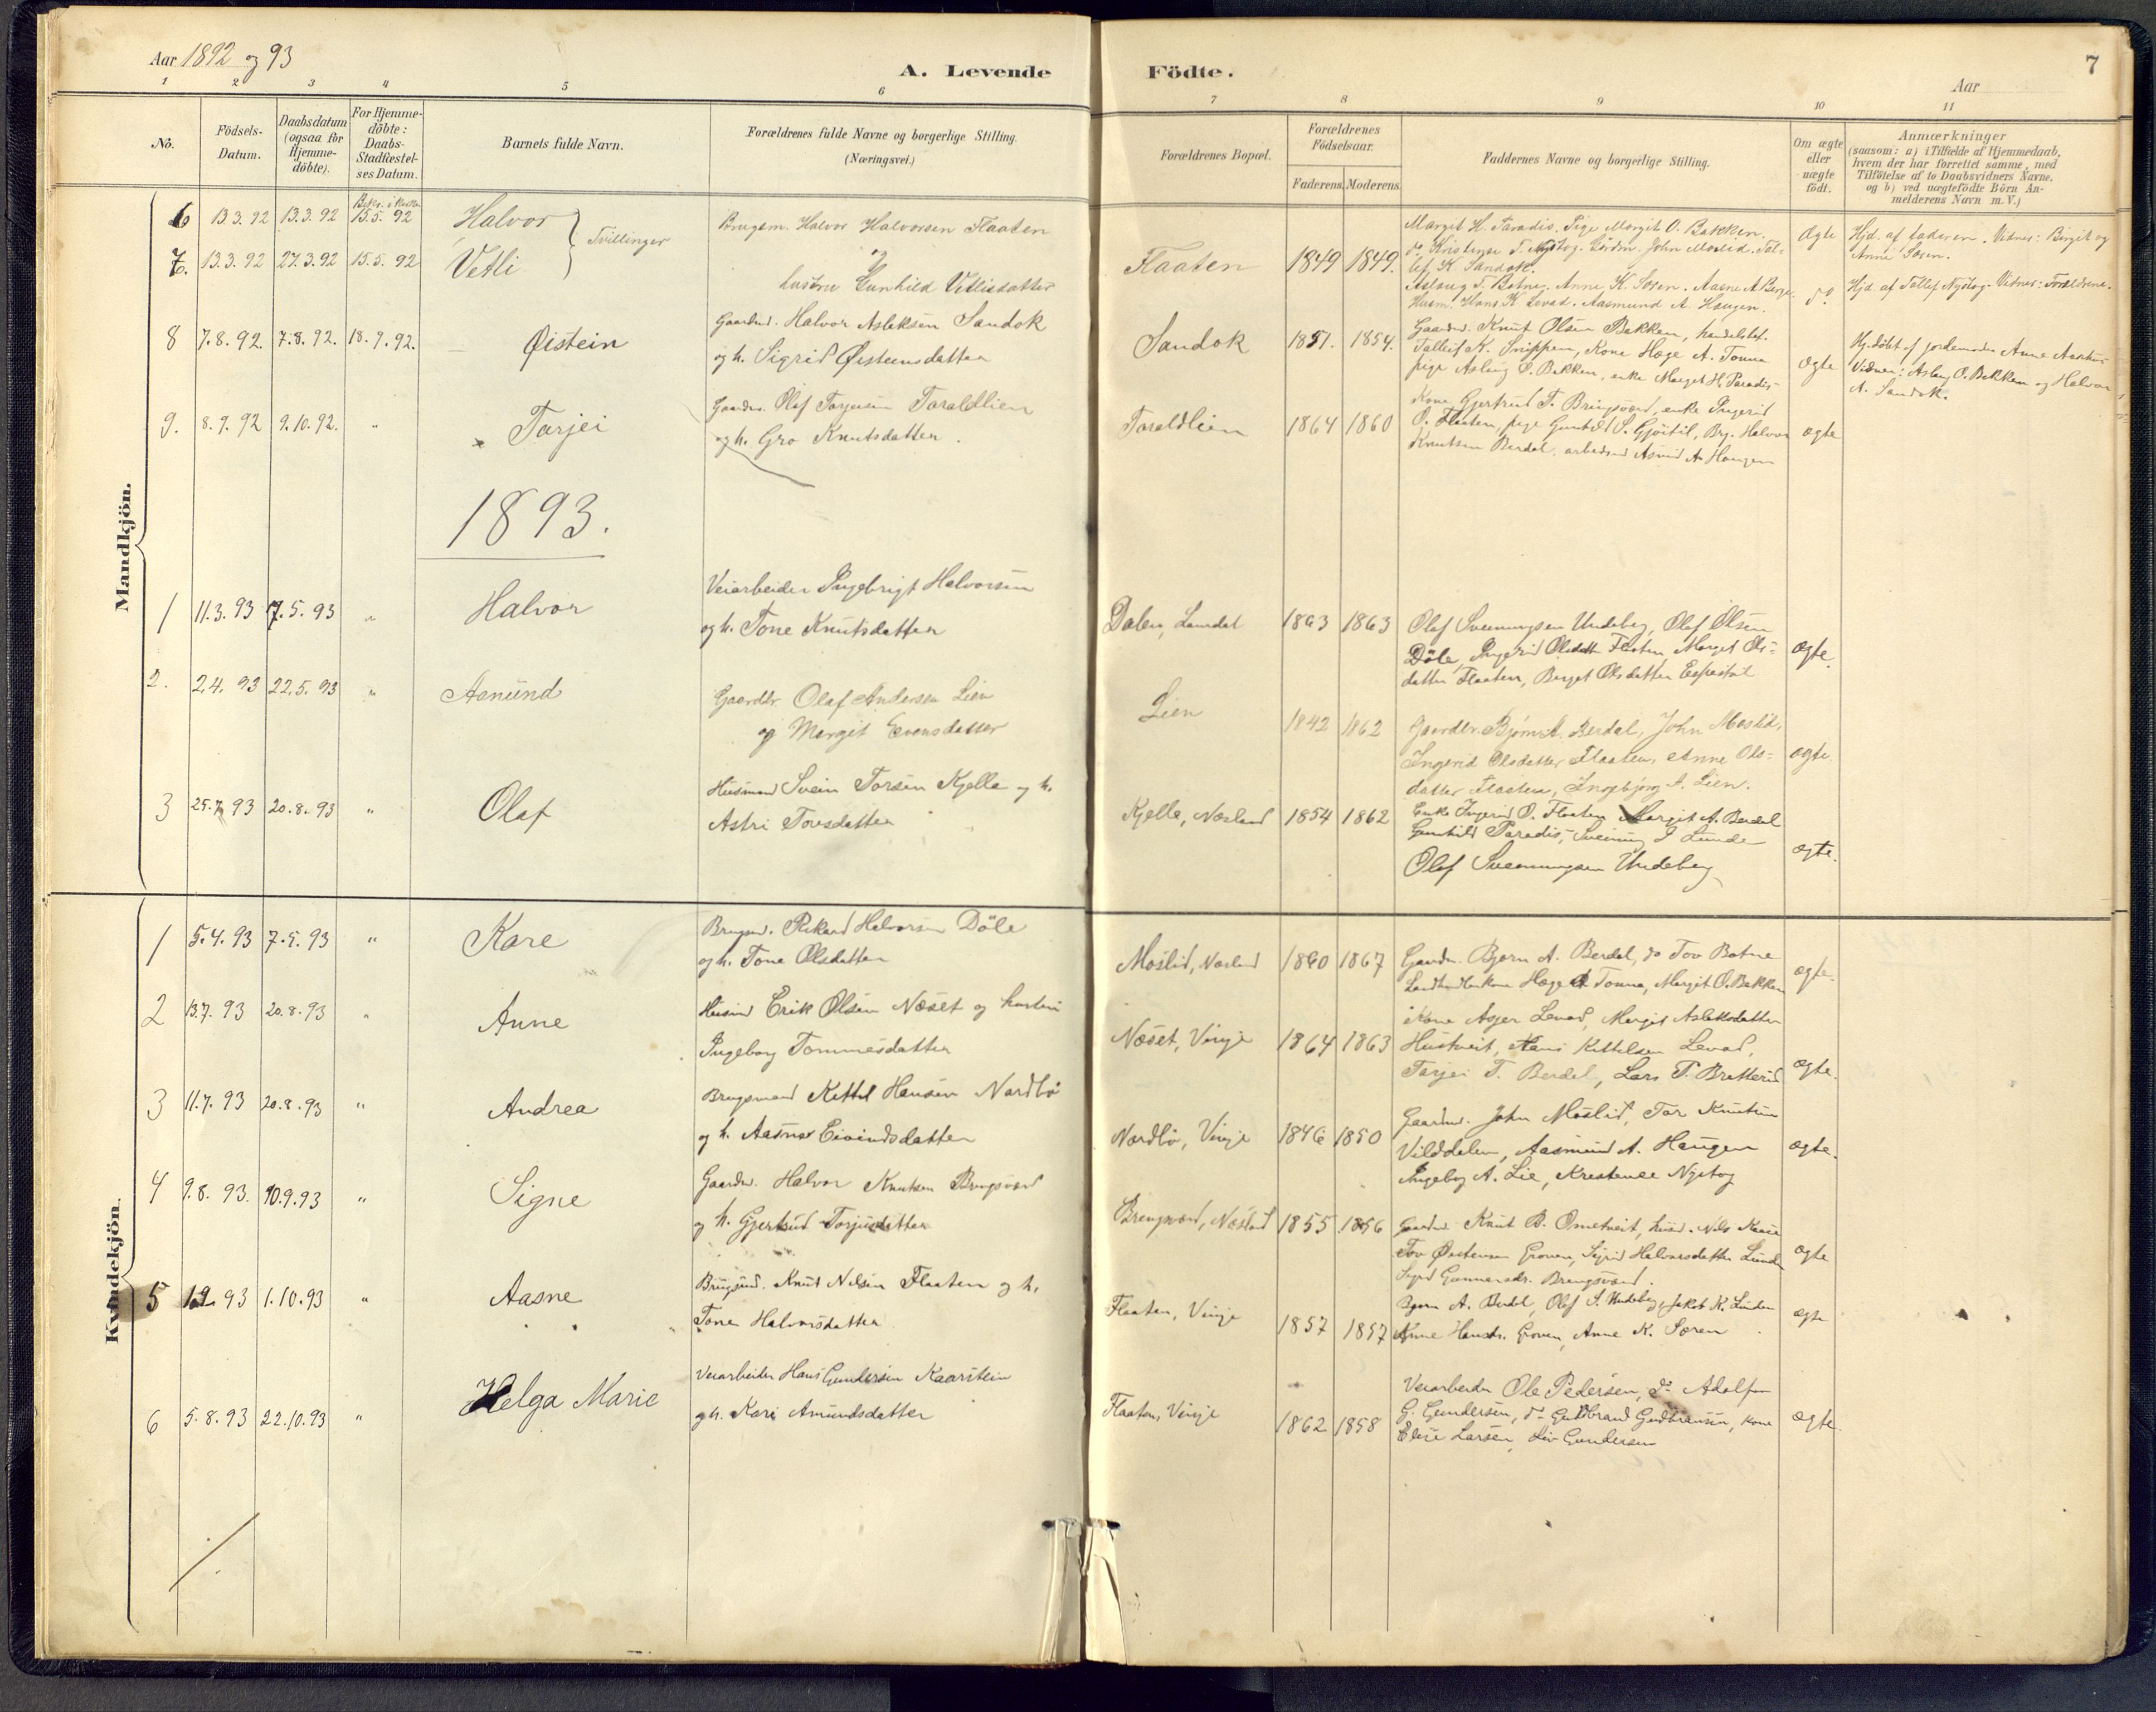 Aar 1892 og 93
A. Levende
Födte.
7
Aar
1 2 3 4 5 6 7 8 9 10 11
No.
Födsels-
Datum.
Daabsdatum
(ogsaa för
Hjemme-
döbte).
For Hjemme-
döbte:
Daabs-
Stadfæstel-
ses Datum.
Barnets fulde Navn.
Forældrenes fulde Navne og borgerlige Stilling.
(Næringsvei.)
Forældrenes Bopæl.
Forældrenes
Födselsaar.
Faderens. Moderens.
Faddernes Navne og borgerlige Stilling.
Om ægte
eller
uægte
födt.
Anmærkninger
(saasom: a) i Tilfælde af Hjemmedaab,
hvem der har forrettet samme, med
Tilföielse af to Daabsvidners Navne,
og b) ved uægtefödte Börn An-
melderens Navn m. V.)
Mandkjön.
6 13.3.92 13.3.92 15.5.92 Halvor
Tvillinger
Brugsm. Halvor Halvorsen Flaaten
7. 13.3.92 27.3.92 15.5.92 Vetli
og
hustru Gunhild Vetlisdatter
Flaaten 1849 1849.
Margit H. Paradis. Pige Margit O. Bakken.
lef K. Sandok.
Aslaug T. Botne. Anne K. Soren. Aasne A. Berge.
Husm. Hans K. Levad. Aasmund A. Haugen.
Ægte
do
Hjd. af faderen. Vidner: Birgit og
Anne Soren.
Hjd. af Tollef Nystog. Vidner: Forældrene.
8 7.8.92. 7.8.92. 18.9.92. Øistein
Gaardm. Halvor Asleksen Sandok
og h. Sigrid Øisteensdatter
Sandok 1851. 1854.
Gaardm. Knut Olsen Bakken, handelsbef.
Talleif K. Snippen, Kone Hæge A. Tonna
pige Aslaug O. Bakken, enke Marget H. Paradis
ægte
Hj.döbt af jordemoder Anne
Vidner: Aslaug O. Bakken og Halvor
A. Sandok.
9. 8.9.92 9.10.92. " Tarjei
Gaardm. Olaf Torjusen Taraldlien
og h. Gro Knutsdatter.
Taraldlien 1864 1860
Kone Gjertrud T. Bringsværd, enke Ingerid
O. Flaaten, pige Gunhild S. Gjöitil, Brg. Halvor
Knutsen Berdal, arbeidsmd Asmund A. Haugen
ægte
1893.
1 11.3.93 7.5.93 " Halvor
Veiarbeider Ingebrigt Halvorsen
og h. Tone Knutsdatter
Dalen, Laurdal 1863 1863
Olaf Sveinungsen Undeberg, Olaf Olsen
Döle, Ingerid Olsdatter Flaaten Marget Ols-
datter Flaaten, Berget Olsdatter
ægte.
2. 2.4.93 22.5.93 " Asmund
Gaardbr. Olaf Andersen Lien
og Margit Evensdatter
Lien 1842 1862
Gaardbr. Bjørn A. Berdal, John Moslid,
Ingerid Olsdatter Flaaten, Anne Ols-
datter Flaaten, Ingebjørg A. Lien.
ægte
3 25.7.93 20.8.93 " Olaf
Husmand Svein Torsen Kjelle og h.
Astri Torsdatter
Kjelle, Nesland 1854 1862
Enke Ingerid O. Flaaten Margit A. Berdal
Gunhild Paradis, Sveinung J Lunde
Olaf Sveinungsen Undeberg
ægte.
Kvindekjön.
1 5.4.93 7.5.93 " Kare
Brugsm. Rikard Halvorsen Döle
og h. Tone Olsdatter
Moslid, Nesland 1860 1867
Gaardm. Bjørn A. Berdal, do Tov Botne
Landhandlerkone Hæge A Tonna, Margit O. Bakken
ægte
2 13.7.93 20.8.93 " Anne
Husmd Erik Olsen Næset og hustru
Ingeborg Tommesdatter
Næset, Vinje 1864 1863
Kone Asjer Levad, Margit Asleksdatter
Hustveit, Hans Kittelsen Levad,
Tarjei T. Berdal, Lars T. Bratterud
ægte.
3 11.7.93 20.8.93 " Andrea
Brugsmand Kettil Hansen Nordbö
og h. Aasne Eivindsdatter
Nordbö, Vinje 1846 1850
Gaardm. John Moslid, Tor Knutsen
Vilddalen, Aasmund A. Haugen
Ingeborg A. Lie, Kristense Nystog
ægte.
4 9.8.93. 10.9.93 " Signe
Gaardm. Halvor Knutsen Bringsværd
og h. Gjertrud Torjusdatter
Bringsværd, Nesland 1855 1856
Gaardm. Knut B. Ormtveit, husm. Nils Kaasa
Tov Øistensen Groven, Sigrid Halvorsdatter Lunde
Sigrid Gunnarsdr. Bringsværd.
ægte
5 1.9.93 1.10.93 " Aasne
Brugsmd. Knut Nilsen Flaaten og h.
Tone Halvorsdatter
Flaaten, Vinje 1857 1857
Bjørn A. Berdal, Olaf S. Undeberg, Jakob K. Linden
Anne Hansdr. Groven, Anne K. Soren.
ægte
6 5.8.93 22.10.93 " Helga Marie
Veiarbeider Hans Gundersen Kaarstein
og h. Kari Amundsdatter
Flaaten, Vinje 1862 1858
Veiarbeider Ole Pedersen, do Adolf
G. Gundersen, do Guldbrand Gudbransen, kone
Elise Larsen, Liv Gundersen
ægte.